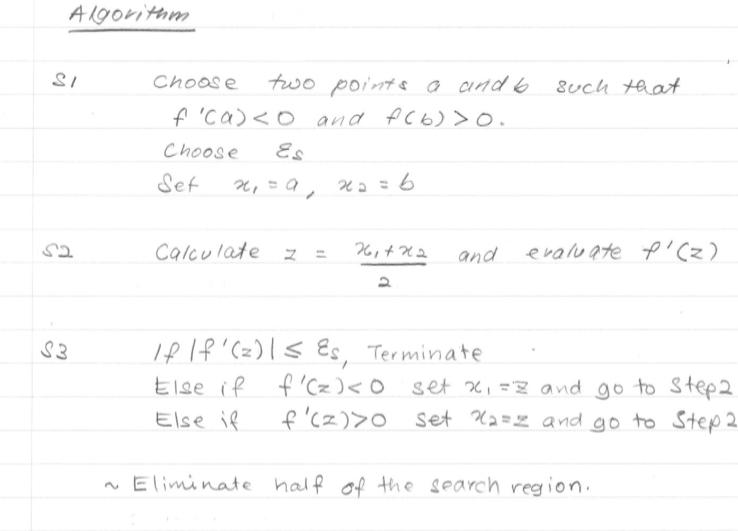 Algorithm
S1 Choose two points a and b such that
f'(a)<0 and f(b)>0.
Choose εs
Set x₁=a, x₂=b
S2 Calculate z = (x₁+x₂)/2 and evaluate f'(z)
S3 If |f'(z)| ≤ εs, Terminate
Else if f'(z)<0 set x₁=z and go to Step2
Else if f'(z)>0 set x₂=z and go to Step2
~ Eliminate half of the search region.